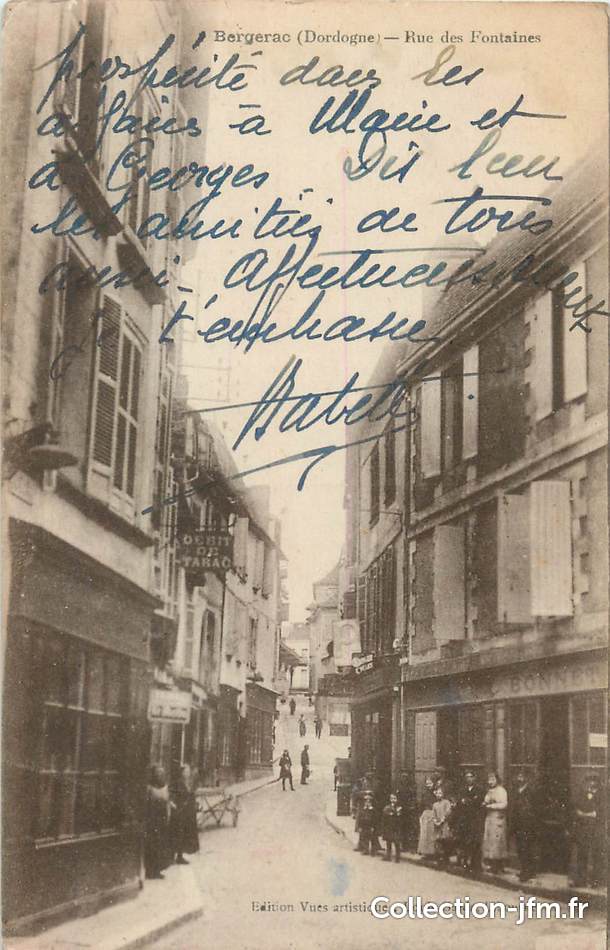 Bergerac (Dordogne) — Rue des Fontaines
prospérité dans les
affaires à Marie et
à Georges. Dis leur
les amitiés de tous
aussi. Affectueusement
je t'embrasse
Babell
DEBIT
DE
TABAC
BONNE
Edition Vues artistique
Collection-jfm.fr